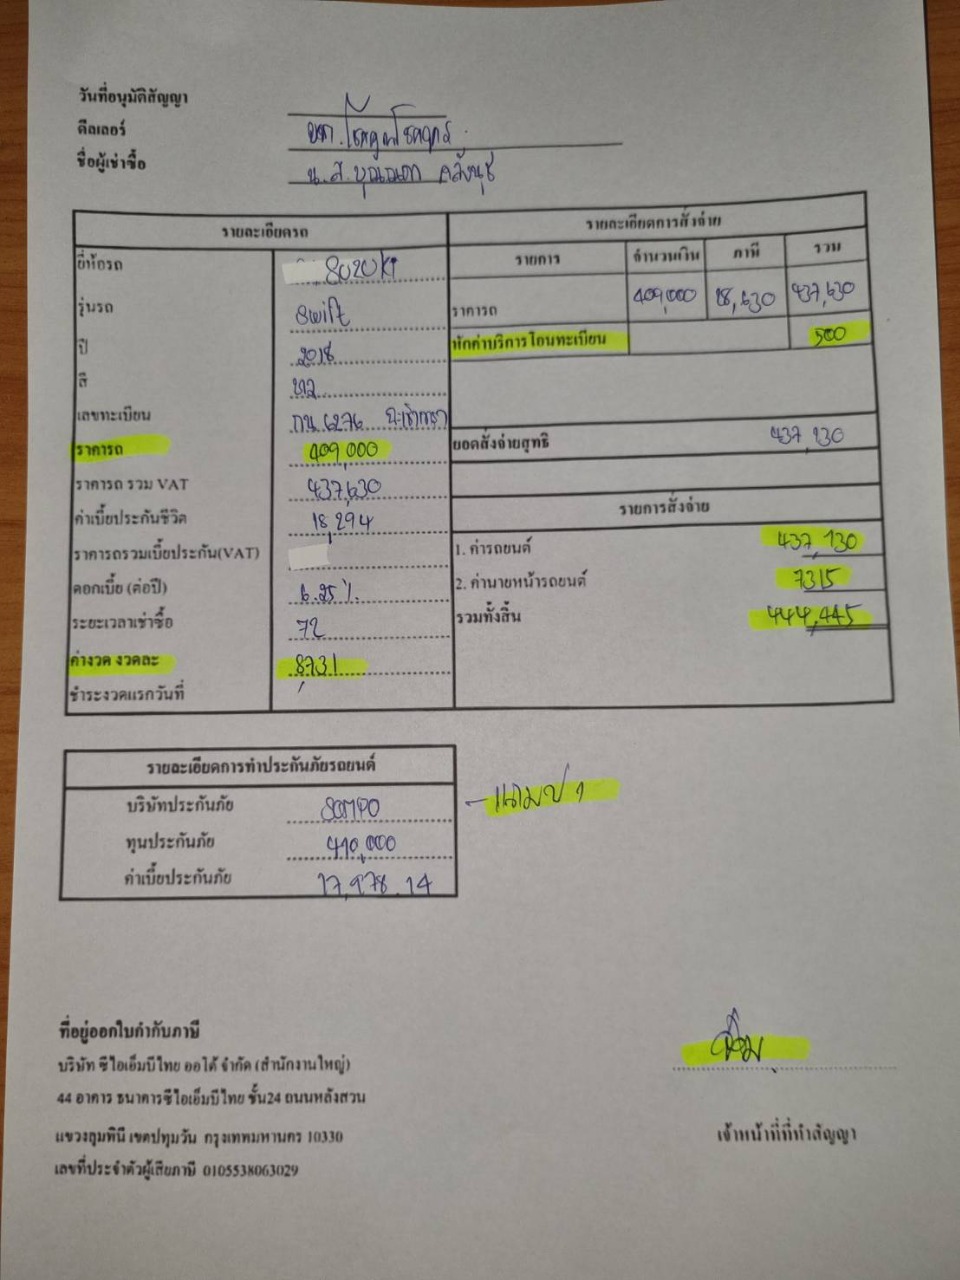 วันที่อนุมัติสัญญา
ดีลเลอร์
ชื่อผู้เช่าซื้อ น.ส.
รายละเอียดรถ
ยี่ห้อรถ
รุ่นรถ Swift
ปี 2018
สี เทา
เลขทะเบียน กน 6276 ฉะเชิงเทรา
ราคารถ 409,000
ราคารถ รวม VAT 437,630
ค่าเบี้ยประกันชีวิต 18,294
ราคารถรวมเบี้ยประกัน(VAT)
ดอกเบี้ย (ต่อปี) 6.25%
ระยะเวลาเช่าซื้อ 72
ค่างวด งวดละ 8,731
ชำระงวดแรกวันที่
รายละเอียดการสั่งจ่าย
รายการ จำนวนเงิน ภาษี รวม
ราคารถ 409,000 28,630 437,630
หักค่าบริการโอนทะเบียน 500
ยอดสั่งจ่ายสุทธิ 437,130
รายการสั่งจ่าย
1. ค่ารถยนต์ 437,130
2. ค่านายหน้ารถยนต์ 7315
รวมทั้งสิ้น 444,445
รายละเอียดการทำประกันภัยรถยนต์
บริษัทประกันภัย SOMPO
ทุนประกันภัย 410,000
ค่าเบี้ยประกันภัย 17,978.14
- แถมป 1
ที่อยู่ออกใบกำกับภาษี
บริษัท ซีไอเอ็มบีไทย ออโต้ จำกัด (สำนักงานใหญ่)
44 อาคาร ธนาคารซีไอเอ็มบีไทย ชั้น24 ถนนหลังสวน
แขวงลุมพินี เขตปทุมวัน กรุงเทพมหานคร 10330
เลขที่ประจำตัวผู้เสียภาษี 0105538063029
เจ้าหน้าที่ที่ทำสัญญา